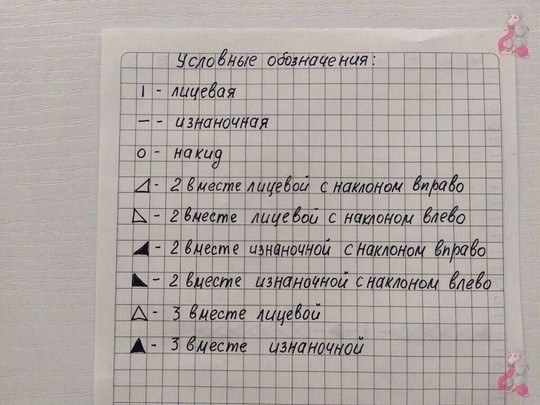 Условные обозначения:
| - лицевая
— - изнаночная
о - накид
◿ - 2 вместе лицевой с наклоном вправо
◺ - 2 вместе лицевой с наклоном влево
◢ - 2 вместе изнаночной с наклоном вправо
◣ - 2 вместе изнаночной с наклоном влево
△ - 3 вместе лицевой
▲ - 3 вместе изнаночной